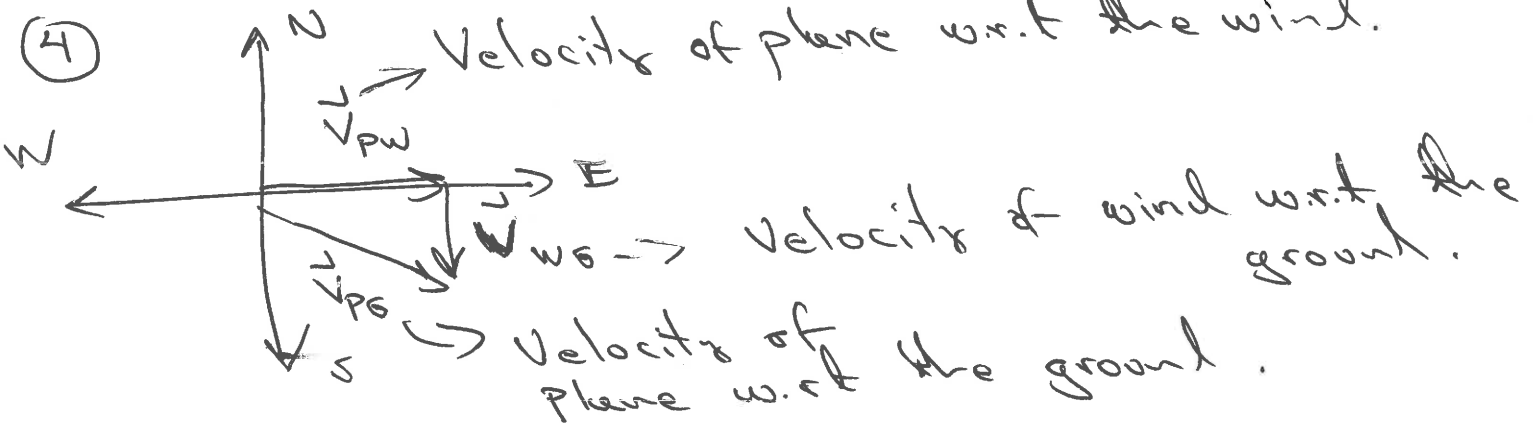 4
N
Velocity of plane w.r.t the wind.
V⃗PW
W
E
V⃗WG -> Velocity of wind w.r.t. the
ground.
V⃗PG -> Velocity of
plane w.r.t the ground.
S